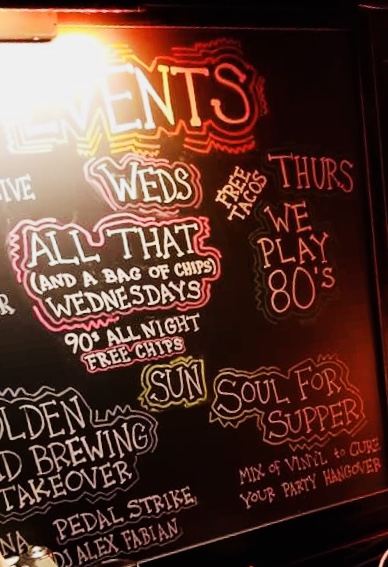 EVENTS
WEDS
ALL THAT
(AND A BAG OF CHIPS)
WEDNESDAYS
90s ALL NIGHT
FREE CHIPS
FREE
TACOS
THURS
WE
PLAY
80's
SUN
SOUL FOR
SUPPER
MIX OF VINYL TO CURE
YOUR PARTY HANGOVER
OLDEN
BREWING
TAKEOVER
PEDAL STRIKE,
DJ ALEX FABIAN